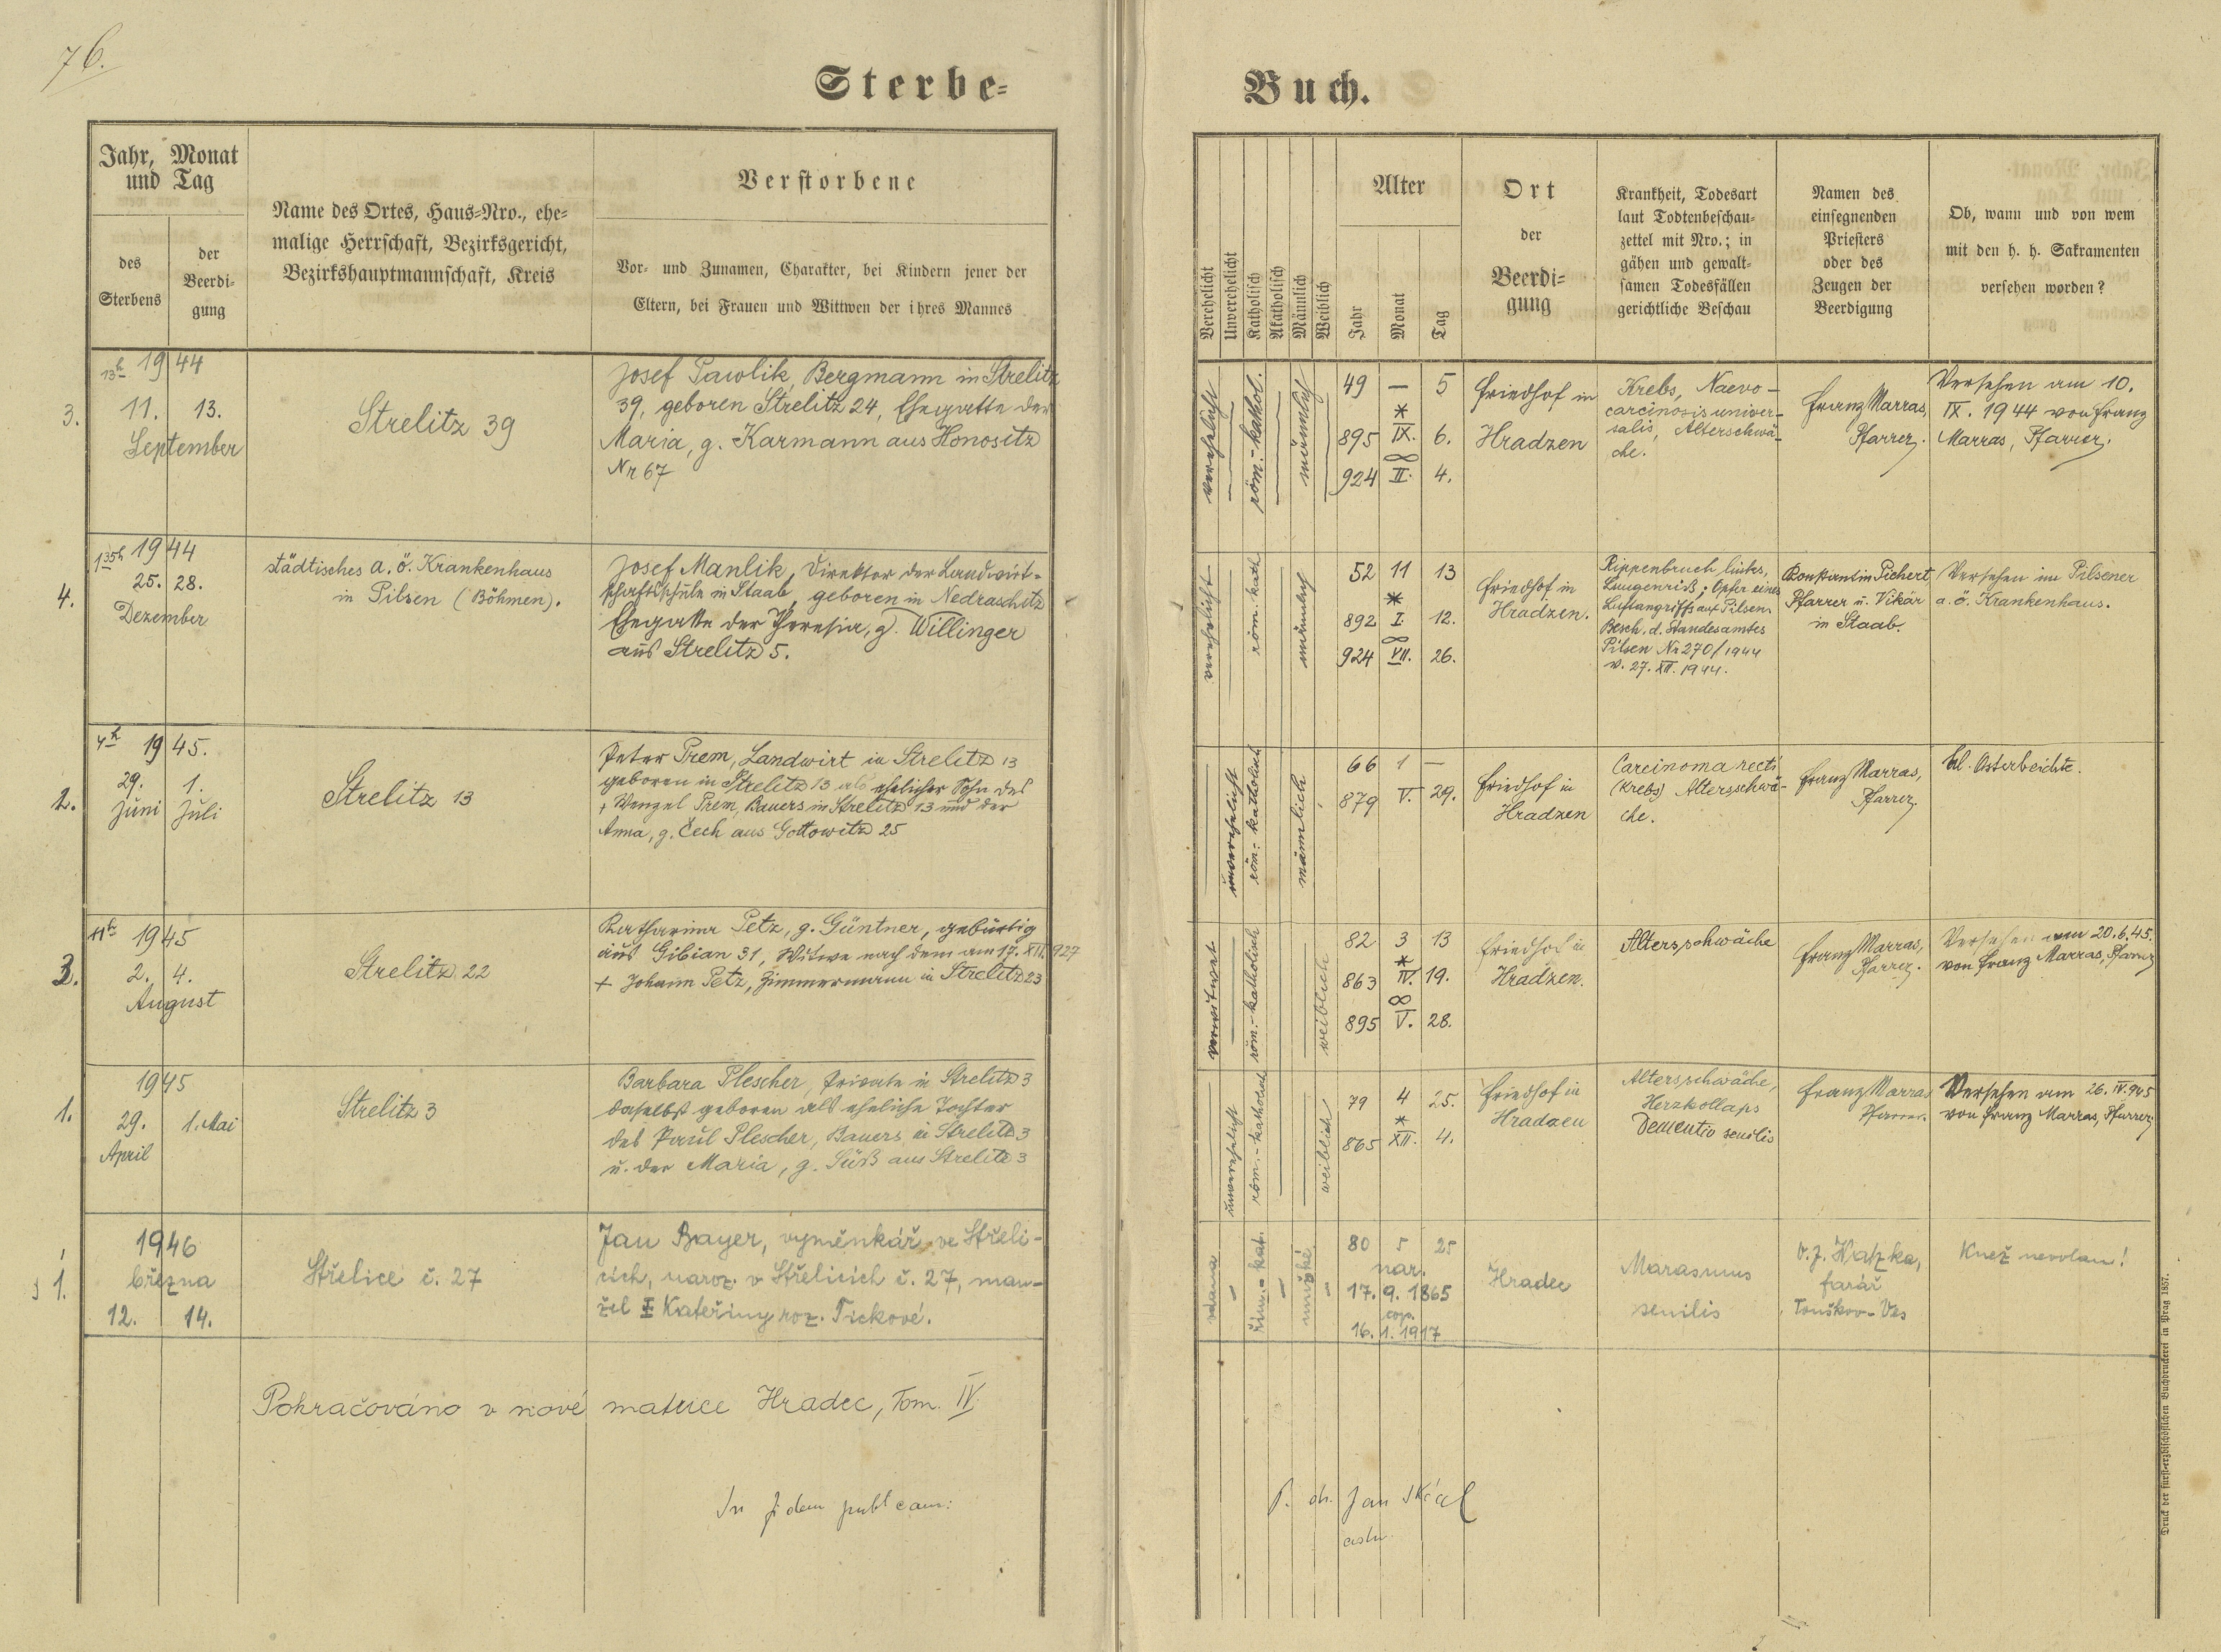 76.
Sterbe-
Buch.
Jahr, Monat
und Tag
des
Sterbens
der
Beerdi-
gung
Name des Ortes, Haus-Nro., ehe-
malige Herrschaft, Bezirksgericht,
Bezirkshauptmannschaft, Kreis
Verstorbene
Vor- und Zunamen, Charakter, bei Kindern jener der
Eltern, bei Frauen und Wittwen der ihres Mannes
Verehelicht
Unverehelicht
Katholisch
Akatholisch
Männlich
Weiblich
Alter
Jahr
Monat
Tag
Ort
der
Beerdi-
gung
Krankheit, Todesart
laut Todtenbeschau-
zettel mit Nro.; in
gähen und gewalt-
samen Todesfällen
gerichtliche Beschau
Namen des
einsegnenden
Priesters
oder des
Zeugen der
Beerdigung
Ob, wann und von wem
mit den h. h. Sakramenten
versehen worden?
3.
13h 1944
11. 13.
September
Strelitz 39
Josef Pawlik, Bergmann in Strelitz
39, geboren Strelitz 24, Ehegatte der
Maria, g. Karmann aus Honositz
Nr 67
verehelicht
röm.-kathol.
männlich
49 — 5
*
895 IX. 6.
∞
924 II. 4.
Friedhof in
Hradzen
Krebs, Naevo-
carcinosis univer-
salis, Altersschwä-
che.
Franz Marras,
Pfarrer.
Versehen am 10.
IX. 1944 von Franz
Marras, Pfarrer.
4.
1 35h 1944
25. 28.
Dezember
städtisches a. ö. Krankenhaus
in Pilsen (Böhmen).
Josef Manlik, Direktor der Landwirt-
schaftsschule in Staab, geboren in Nedraschitz
Ehegatte der Theresia, g. Willinger
aus Strelitz 5.
verehelicht
röm. kath
männlich
52 11 13
*
892 I. 12.
∞
924 VII. 26.
Friedhof in
Hradzen.
Rippenbruch links,
Lungenriß; Opfer eines
Luftangriffs auf Pilsen.
Besch. d. Standesamtes
Pilsen Nr 270/1944
v. 27. XII. 1944.
Konstantin Pichert
Pfarrer u. Vikär
in Staab.
Versehen im Pilsener
a. ö. Krankenhaus.
2.
4h 1945.
29. 1.
Juni Juli
Strelitz 13
Peter Prem, Landwirt in Strelitz 13
geboren in Strelitz 13 als ehelicher Sohn des
+ Wenzel Prem, Bauers in Strelitz 13 und der
Anna, g. Čech aus Gottowitz 25
unverehelicht
röm.-katholisch
männlich
66 1 —
879 V. 29.
Friedhof in
Hradzen
Carcinoma recti
(Krebs) Altersschwä-
che.
Franz Marras,
Pfarrer.
hl. Osterbeichte.
3.
11h 1945
2. 4.
August
Strelitz 22
Katharina Petz, g. Güntner, gebürtig
aus Gibian 31, Witwe nach dem am 17. XII. 927
+ Johann Petz, Zimmermann in Strelitz 23
verwitwet
röm.-katholisch
weiblich
82 3 13
*
863 IV. 19.
∞
895 V. 28.
Friedhof in
Hradzen.
Altersschwäche
Franz Marras,
Pfarrer.
Versehen am 20.6.45.
von Franz Marras, Pfarrer
1.
1945
29. 1. Mai
April
Strelitz 3
Barbara Plescher, Private in Strelitz 3
daselbst geboren als eheliche Tochter
des Paul Plescher, Bauers in Strelitz 3
u. der Maria, g. Süß aus Strelitz 3
unverehelicht
röm.-katholisch
weiblich
79 4 25.
*
865 XII. 4.
Friedhof in
Hradzen
Altersschwäche,
Herzkollaps
Dementio senilis
Franz Marras
Pfarrer.
Versehen am 26. IV. 945
von Franz Marras, Pfarrer
1.
1946
března
12. 14.
Střelice č. 27
Jan Bayer, výměnkář ve Střeli-
cích, naroz. v Střelicích č. 27, man-
žel I Kateřiny roz. Tickové.
řím.-kat.
mužské
80 5 25
nar.
17. 9. 1865
cop.
16. 1. 1917
Hradec
Marasmus
senilis
farář
Touškov-Ves
Kněz nevolan!
Pokračováno v nové matrice Hradec, Tom. IV.
In fidem publicam:
Druck der fürst-erzbischöflichen Buchdruckerei in Prag 1857.